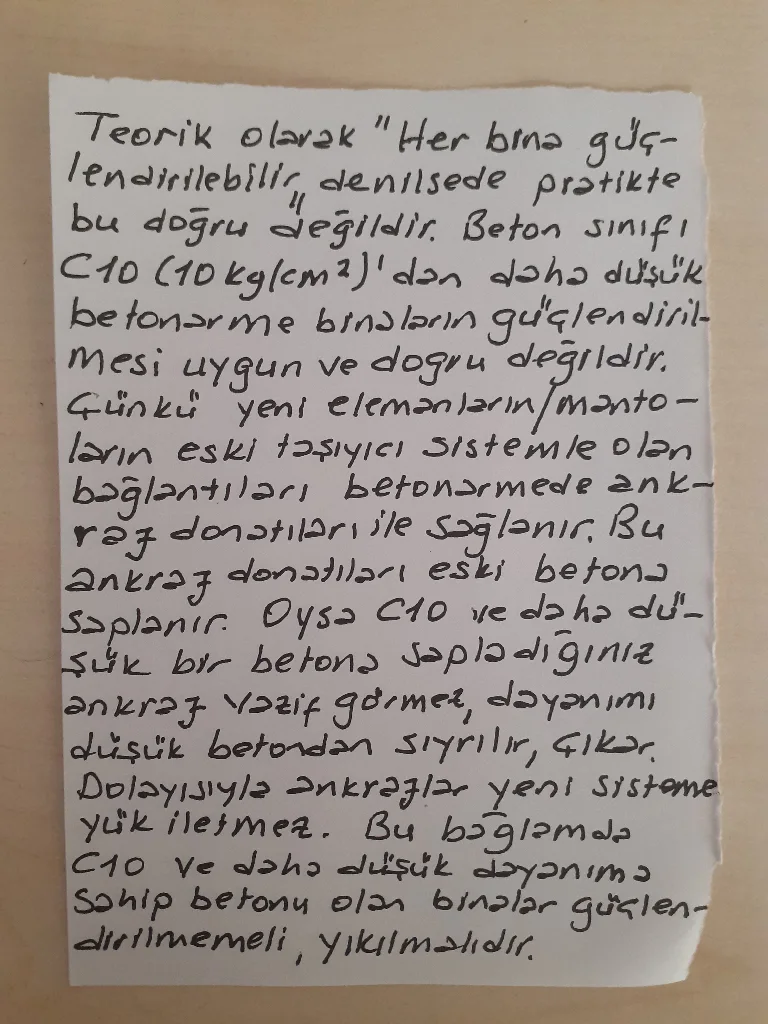 Teorik olarak "Her bina güç-
lendirilebilir" denilsede pratikte
bu doğru değildir. Beton sınıfı
C10 (10kg/cm²)'dan daha düşük
betonarme binaların güçlendiril-
mesi uygun ve dogru değildir.
Çünkü yeni elemanların/manto-
ların eski taşıyıcı sistemle olan
bağlantıları betonarmede ank-
raj donatıları ile sağlanır. Bu
ankraj donatıları eski betona
saplanır. Oysa C10 ve daha dü-
şük bir betona sapladığınız
ankraj vazif görmez, dayanımı
düşük betondan sıyrılır, çıkar.
Dolayısıyla ankrajlar yeni sisteme
yük iletmez. Bu bağlamda
C10 ve daha düşük dayanıma
sahip betonu olan binalar güçlen-
dirilmemeli, yıkılmalıdır.